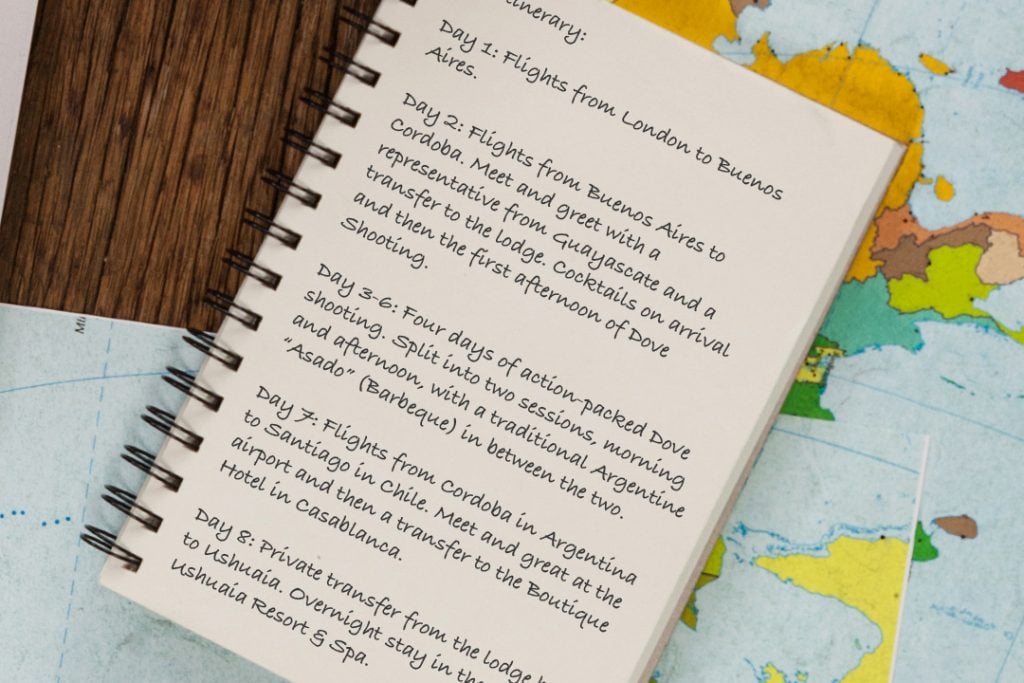 Itinerary:
Day 1: Flights from London to Buenos
Aires.
Day 2: Flights from Buenos Aires to
Cordoba. Meet and greet with a
representative from Guayascate and a
transfer to the lodge. Cocktails on arrival
and then the first afternoon of Dove
Shooting.
Day 3-6: Four days of action-packed Dove
shooting. Split into two sessions, morning
and afternoon, with a traditional Argentine
"Asado" (Barbeque) in between the two.
Day 7: Flights from Cordoba in Argentina
to Santiago in Chile. Meet and great at the
airport and then a transfer to the Boutique
Hotel in Casablanca.
Day 8: Private transfer from the lodge
to Ushuaia. Overnight stay in the
Ushuaia Resort & Spa.